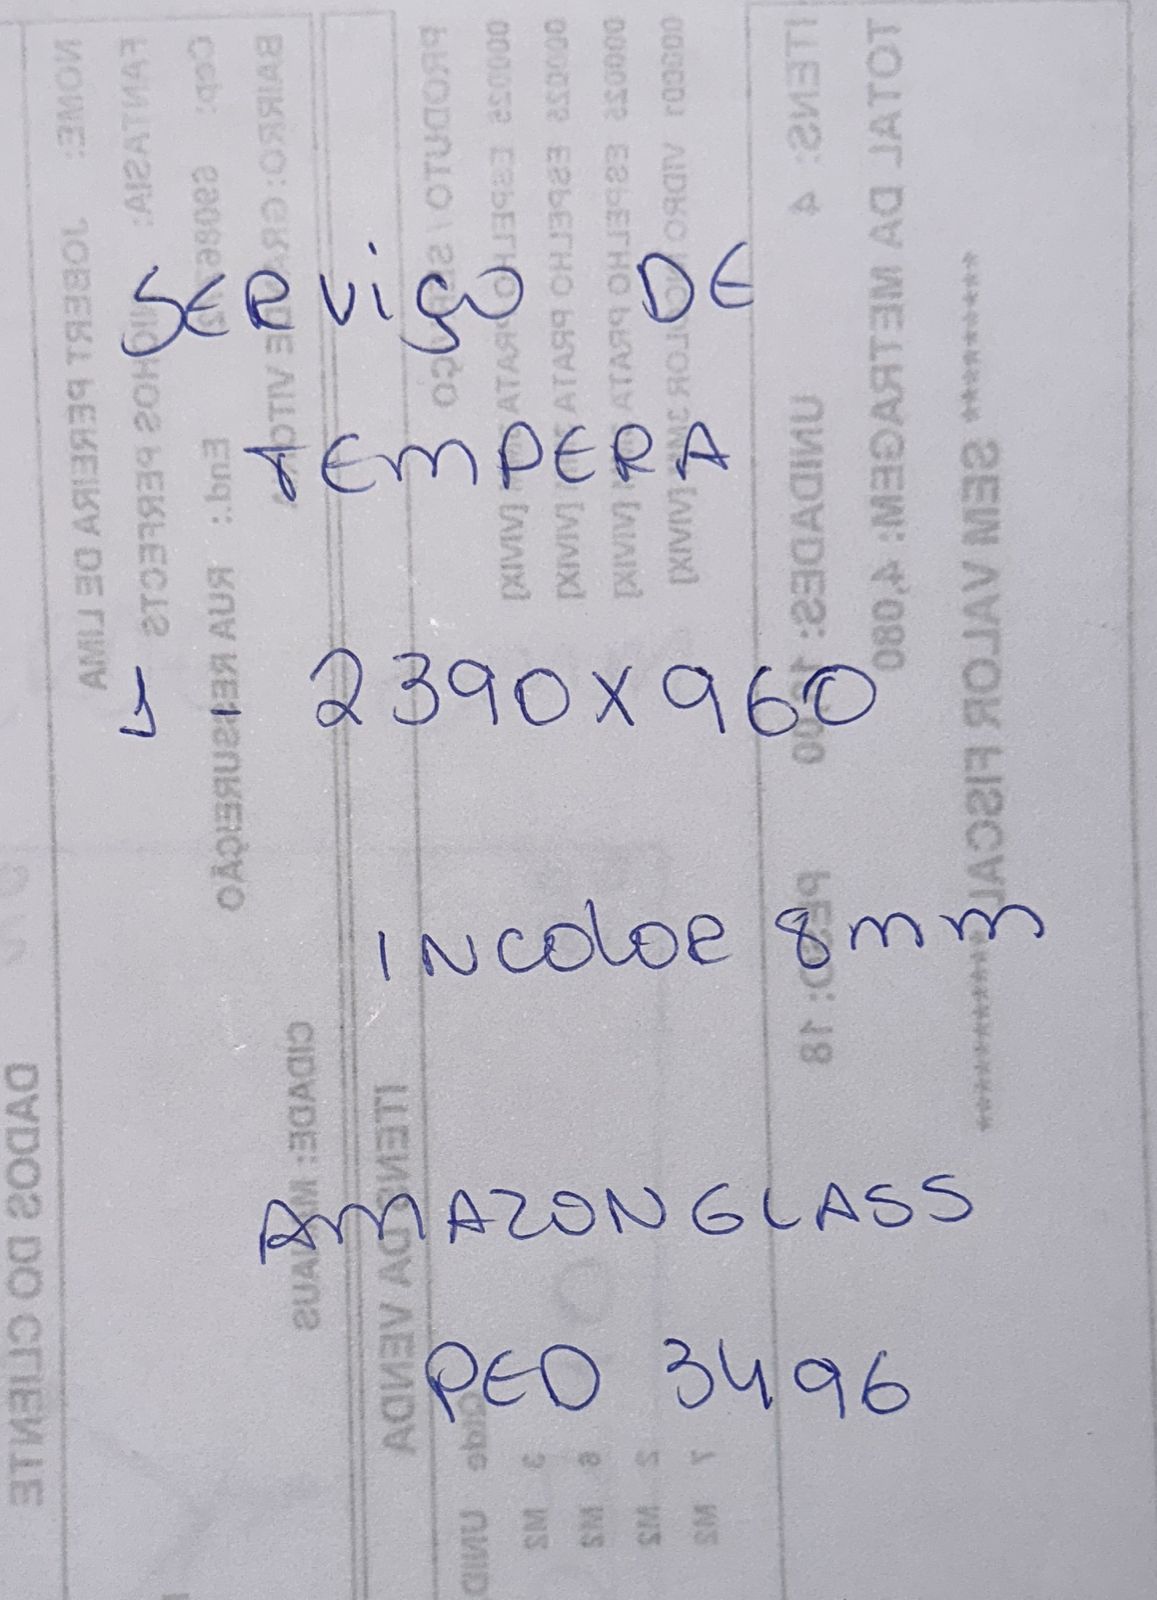 SERViçO DE
TEMPERA
1 - 2390 x 960
INColoR 8mm
AMAZONGLASS
PED 3496
DADOS DO CLIENTE
NOME: JOBERT PEREIRA DE LIMA
FANTASIA: NICHOS PERFECTS
Cep: End.: RUA RESSUREIÇÃO
BAIRRO: CIDADE: MANAUS
ITENS DA VENDA
PRODUTO / SERVIÇO UNID
000025 ESPELHO PRATA [VIVIX] 3 M2
000025 ESPELHO PRATA [VIVIX] 6 M2
000025 ESPELHO PRATA [VIVIX] 2 M2
000001 VIDRO INCOLOR 3MM [VIVIX] M2
ITENS: 4 UNIDADES: PESO: 18
TOTAL DA METRAGEM: 4,080
SEM VALOR FISCAL